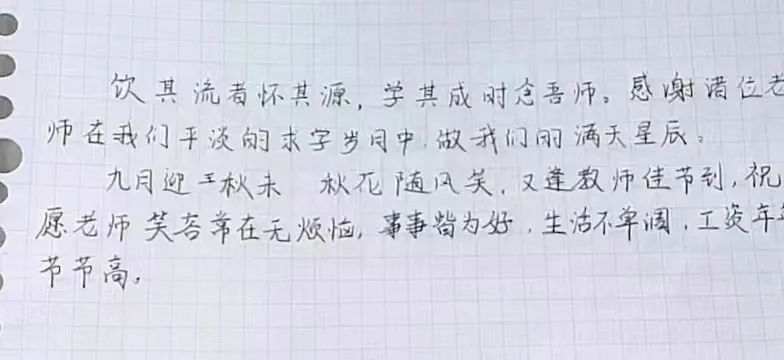 饮其流者怀其源，学其成时念吾师。感谢诸位老
师在我们平淡的求字岁月中，做我们的满天星辰。
九月迎王秋未 秋花随风笑，又逢教师佳节到，祝
愿老师笑容常在无烦恼，事事皆为好，生活不单调，工资年年
节节高。